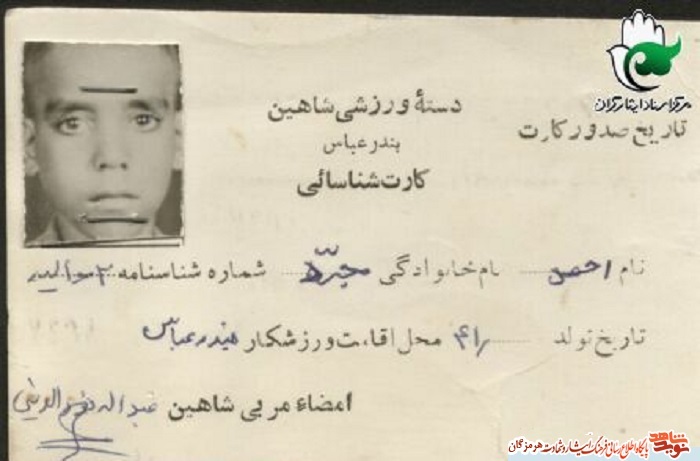 مرکز اسناد ایثارگران
دستهٔ ورزشی شاهین
تاریخ صدور کارت
بندرعباس
کارت شناسائی
نام احمد نام خانوادگی مجرد شماره شناسنامه
تاریخ تولد ۴۱ محل اقامت ورزشکار بندرعباس
امضاء مربی شاهین عبداله
نوید شاهد پایگاه اطلاع رسانی فرهنگ ایثار و شهادت هرمزگان